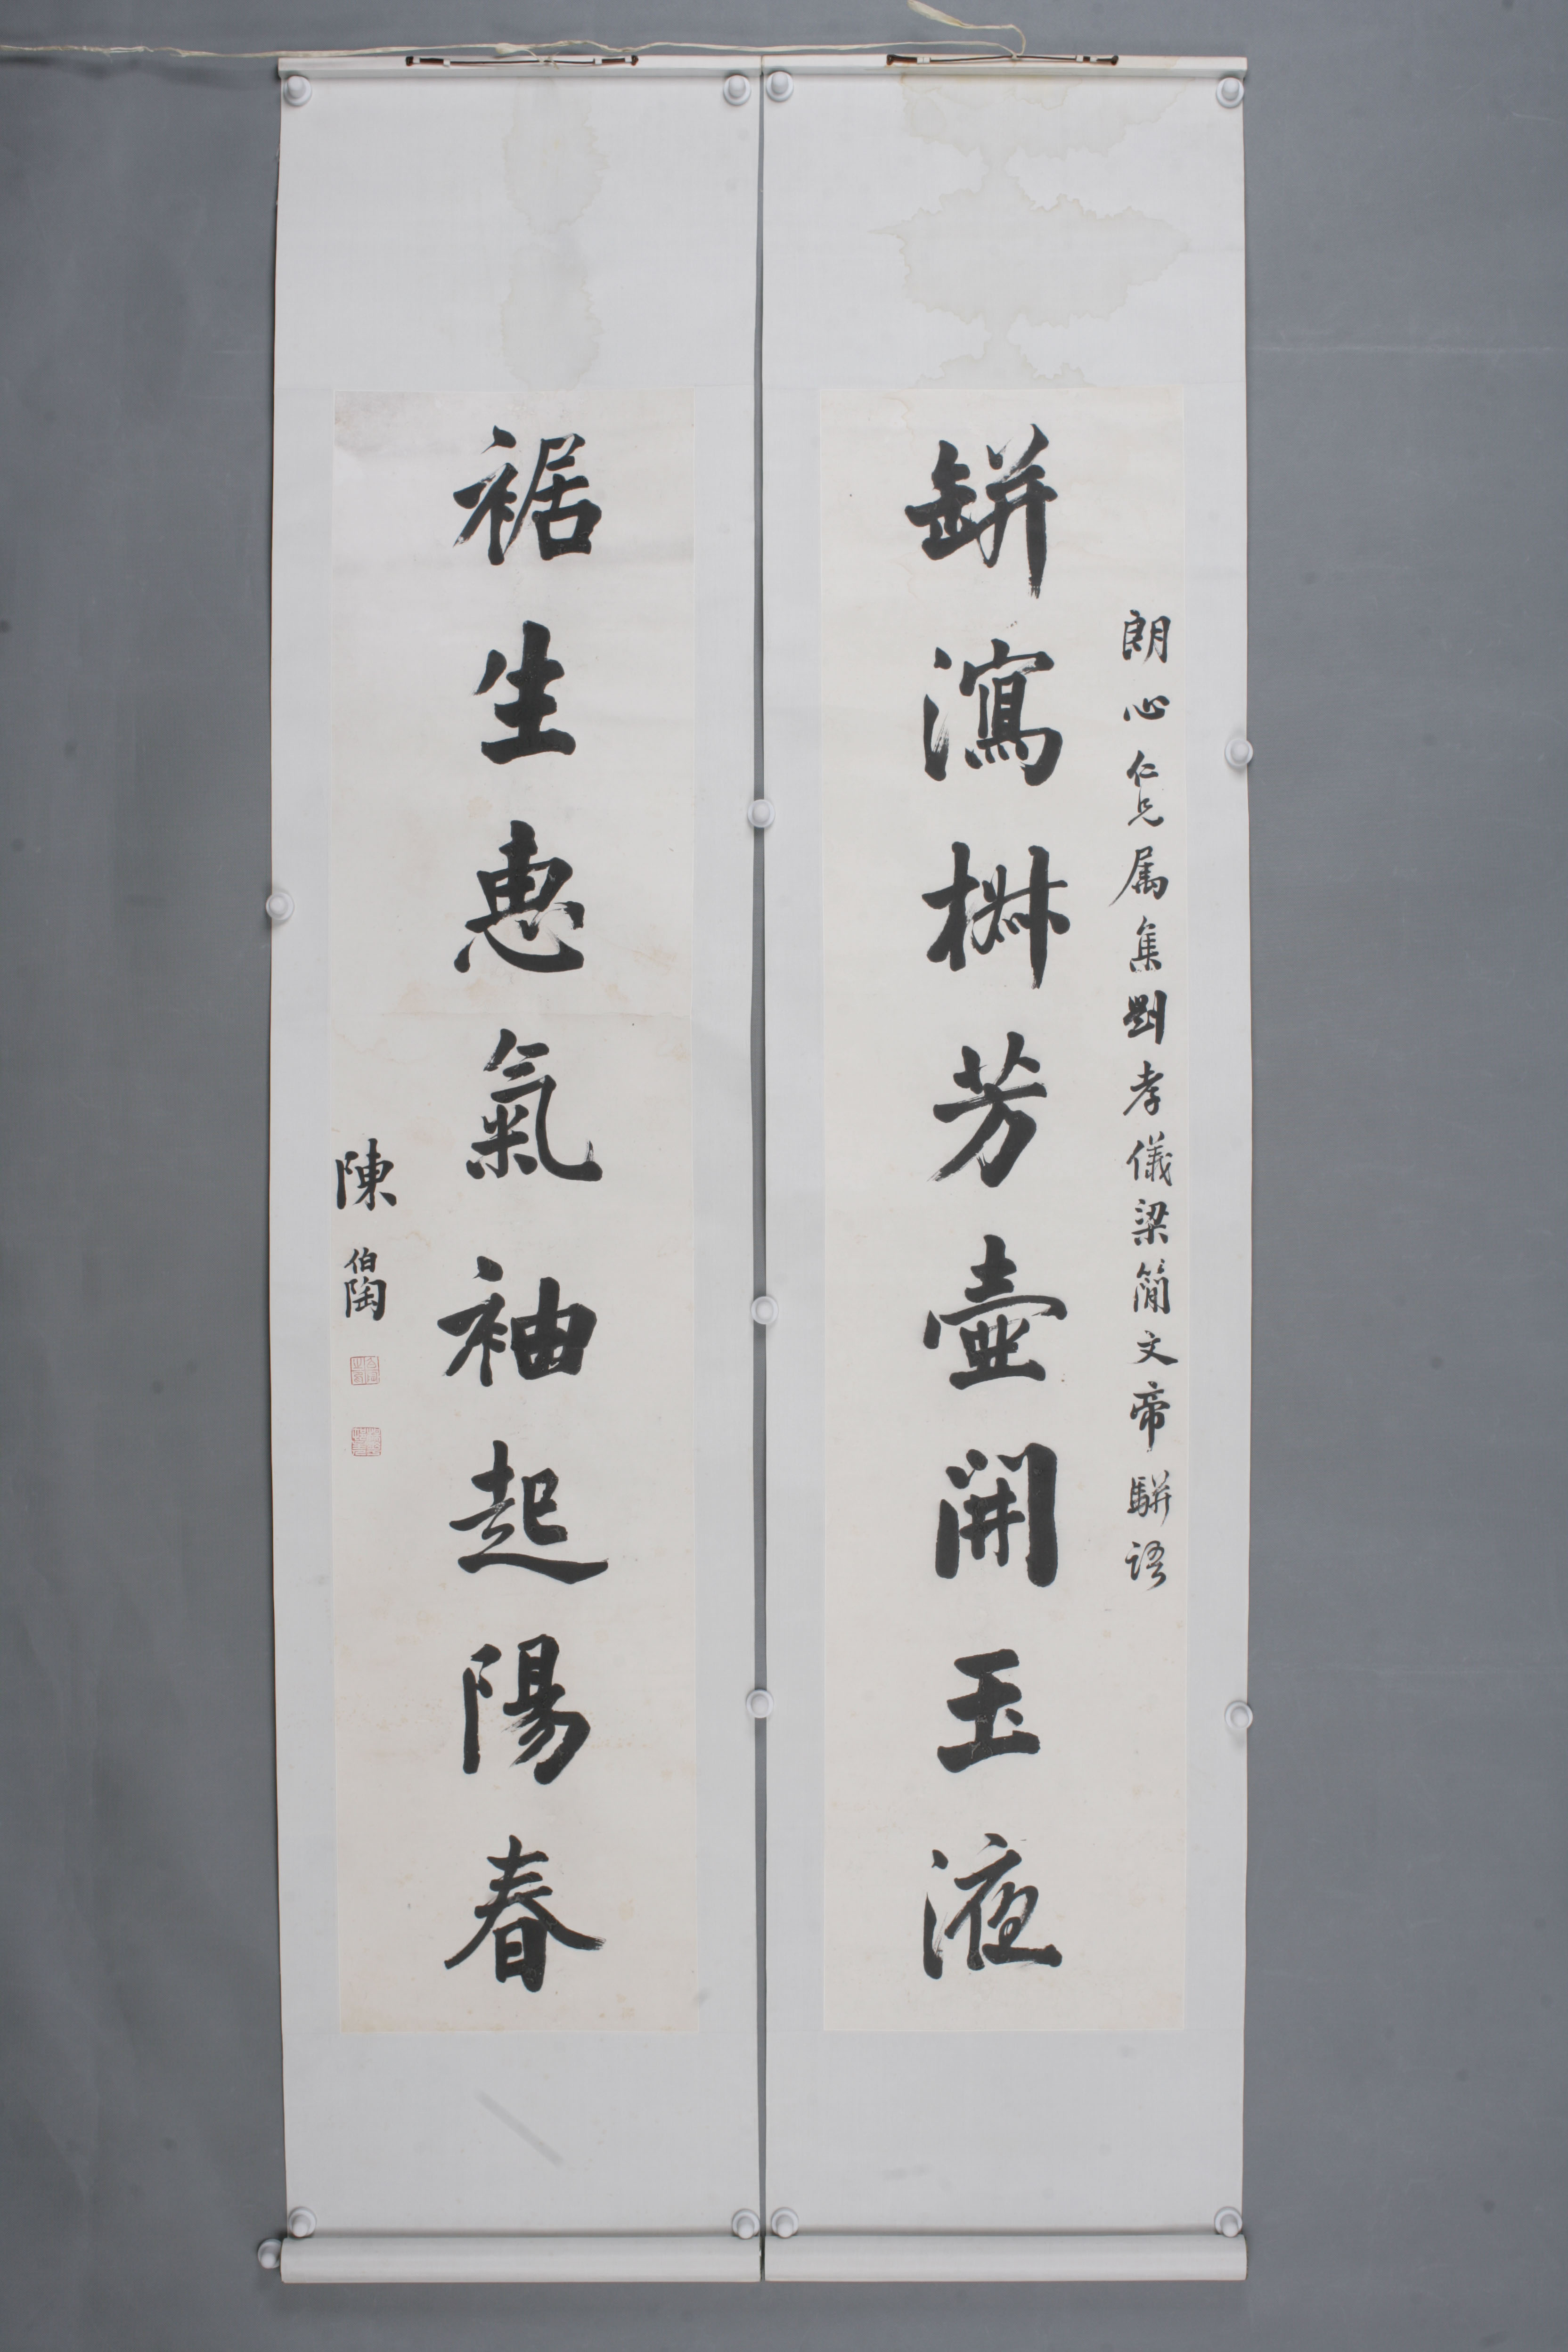 朗心仁兄属集劉孝儀梁簡文帝駢語
缾瀉椒芳壺開玉液
裾生惠氣袖起陽春
陳伯陶